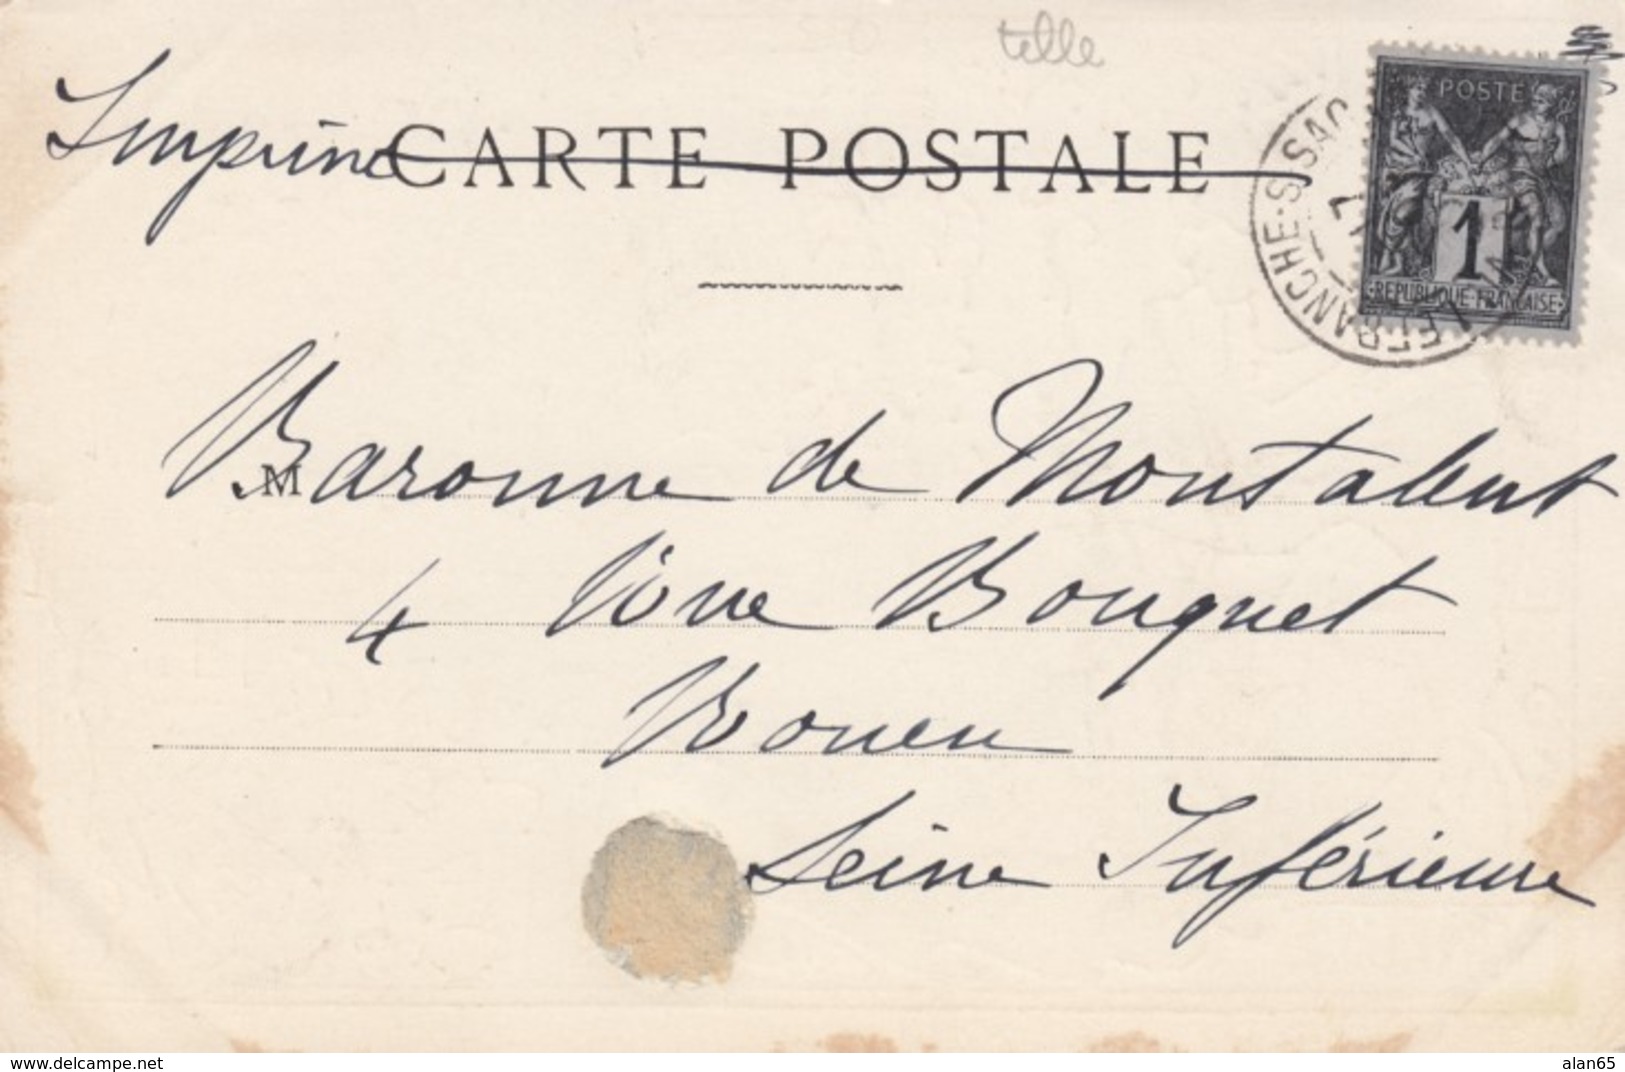 tille
Imprimé CARTE POSTALE
POSTE
1
REPUBLIQUE FRANÇAISE
LEFRANCHE-S-SAO
M Baronne de Montalent
4 rue Bouquet
Rouen
Seine Inférieure
www.delcampe.net
alan65